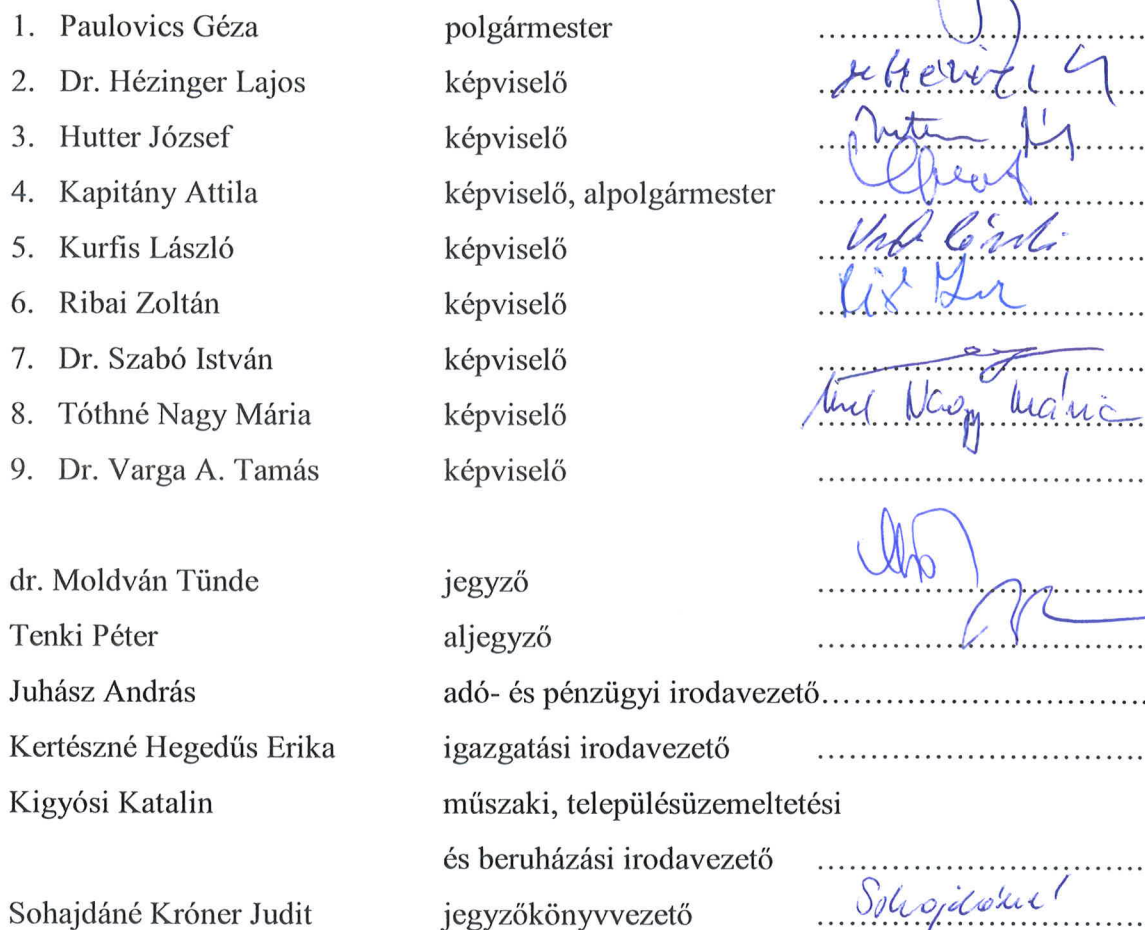 1. Paulovics Géza polgármester ..............................
2. Dr. Hézinger Lajos képviselő ..............................
3. Hutter József képviselő ..............................
4. Kapitány Attila képviselő, alpolgármester ..............................
5. Kurfis László képviselő ..............................
6. Ribai Zoltán képviselő ..............................
7. Dr. Szabó István képviselő ..............................
8. Tóthné Nagy Mária képviselő Nagy Mária
9. Dr. Varga A. Tamás képviselő ..............................
dr. Moldván Tünde jegyző ..............................
Tenki Péter aljegyző ..............................
Juhász András adó- és pénzügyi irodavezető..............................
Kertészné Hegedűs Erika igazgatási irodavezető ..............................
Kigyósi Katalin műszaki, településüzemeltetési
és beruházási irodavezető ..............................
Sohajdáné Króner Judit jegyzőkönyvvezető Sohajdáné